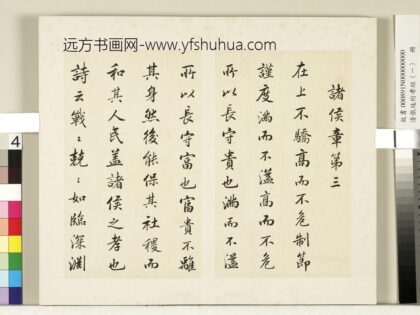 远方书画网-www.yfshuhua.com
諸侯章第三
在上不驕高而不危制節
謹度滿而不溢高而不危
所以長守貴也滿而不溢
所以長守富也富貴不離
其身然後能保其社稷而
和其人民蓋諸侯之孝也
詩云戰〻兢〻如臨深淵
4